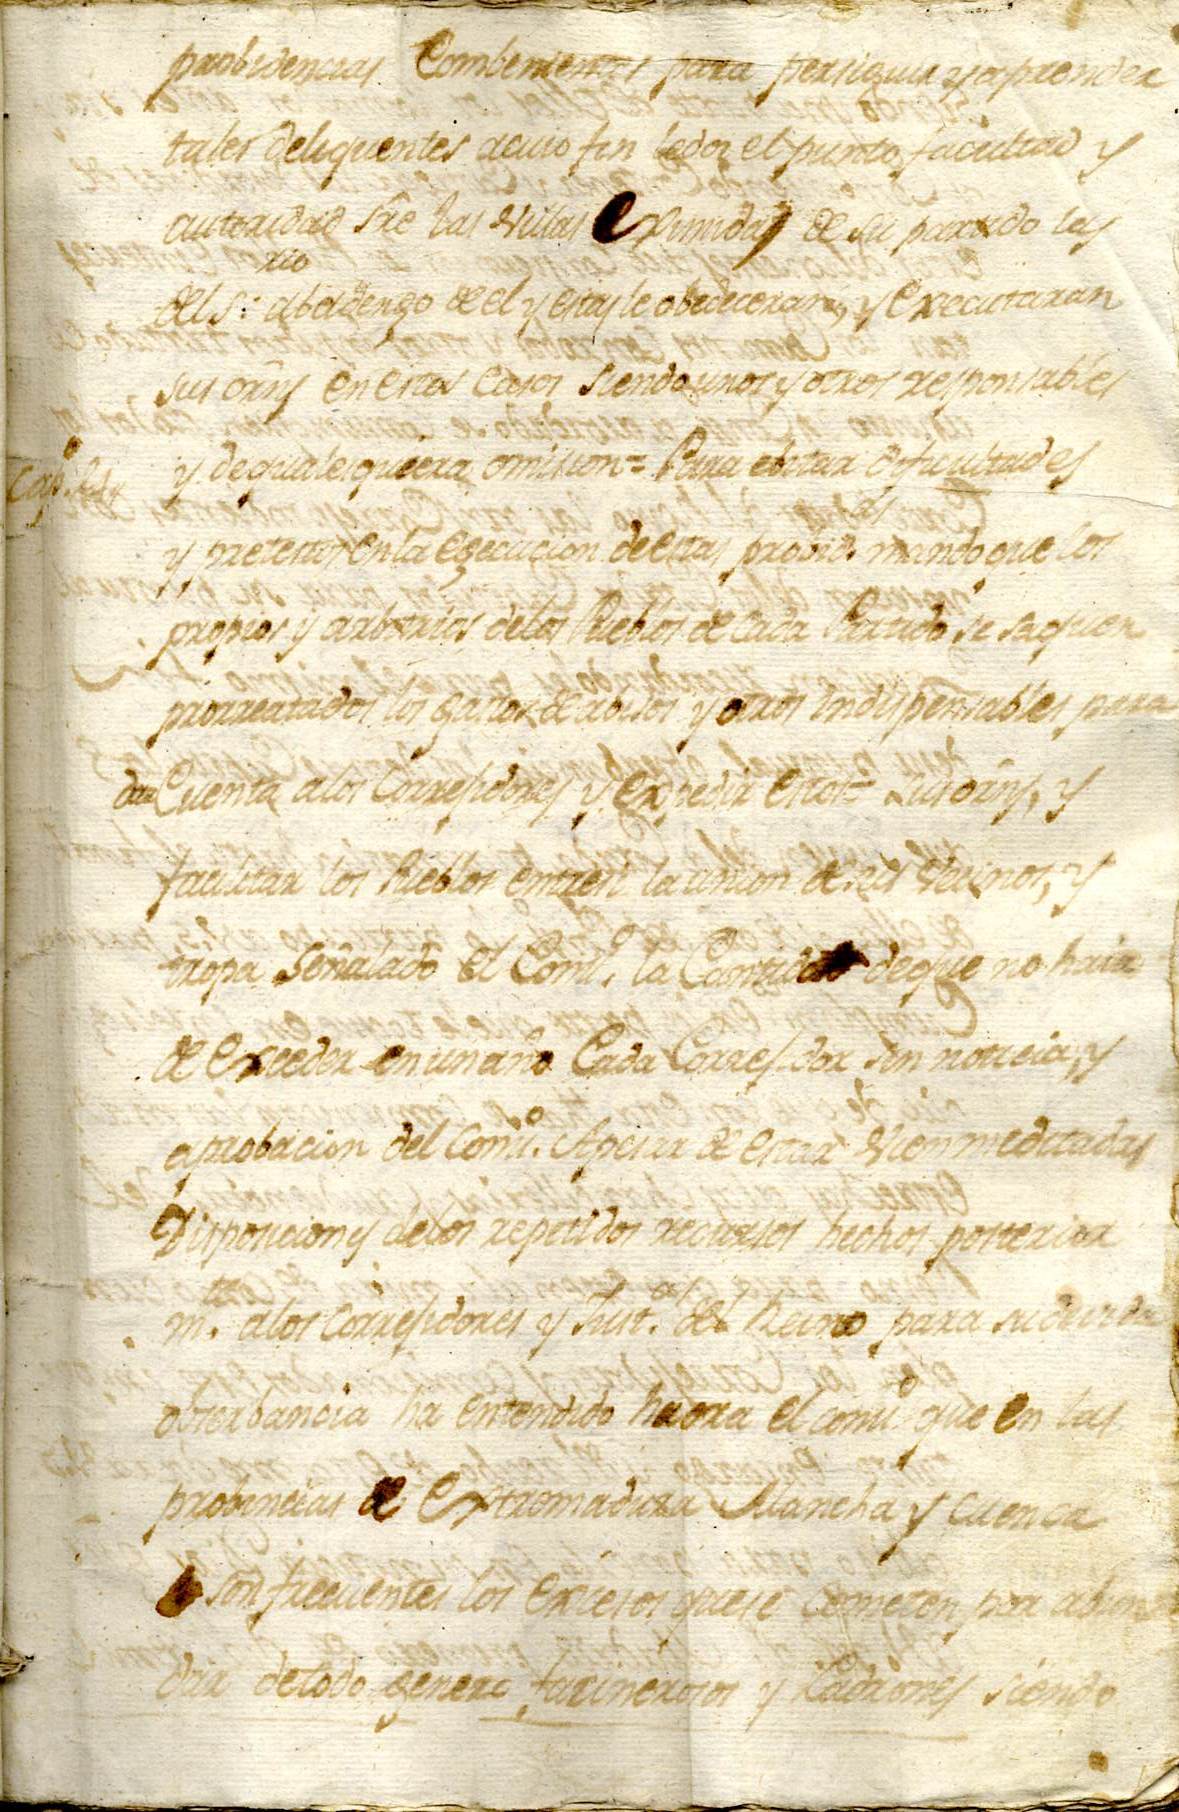 probidencias Combenientes para perseguir y aprender
tales delequentes acuio fin ledoi el punto facultad y
autoridad sre las Villas Eximidas de su partido las
rio
del S: abadengo de el y estas le obedeceran, y Executaran
sus orns en estos Casos siendo unos y otros responsables
y de qualesquiera omision = Para ebitar dificultades
Capo
y pretestos en la egecucion de estas provid.as mando que los
propios y arbitrios de los Pueblos de Cada Partido se saquen
prorreatados los gastos de abisos y otros indispensables para
dar Cuenta a los Corregidores y Expedir estos = sus orns, y
facilitar los Pueblos entresi la union de sus Vecinos, y
tropa señalado el Cons.o la Cantidad de que no haia
de Exceder en un año Cada Corregidor sin noticia, y
aprobacion del Cons.o Apesar de estar Vien meditadas
Disposiciones de los repetidos recuersos hechos posterior
m.te a los Corregidores y Just.as del Reino para su devida
obserbancia ha entendido haora el Cons.o que en las
probincias de Extremadura Mancha y Cuenca
son frecuentes los Excesos que se Cometen por abun
dar de todo genero facinerosos y Ladrones siendo